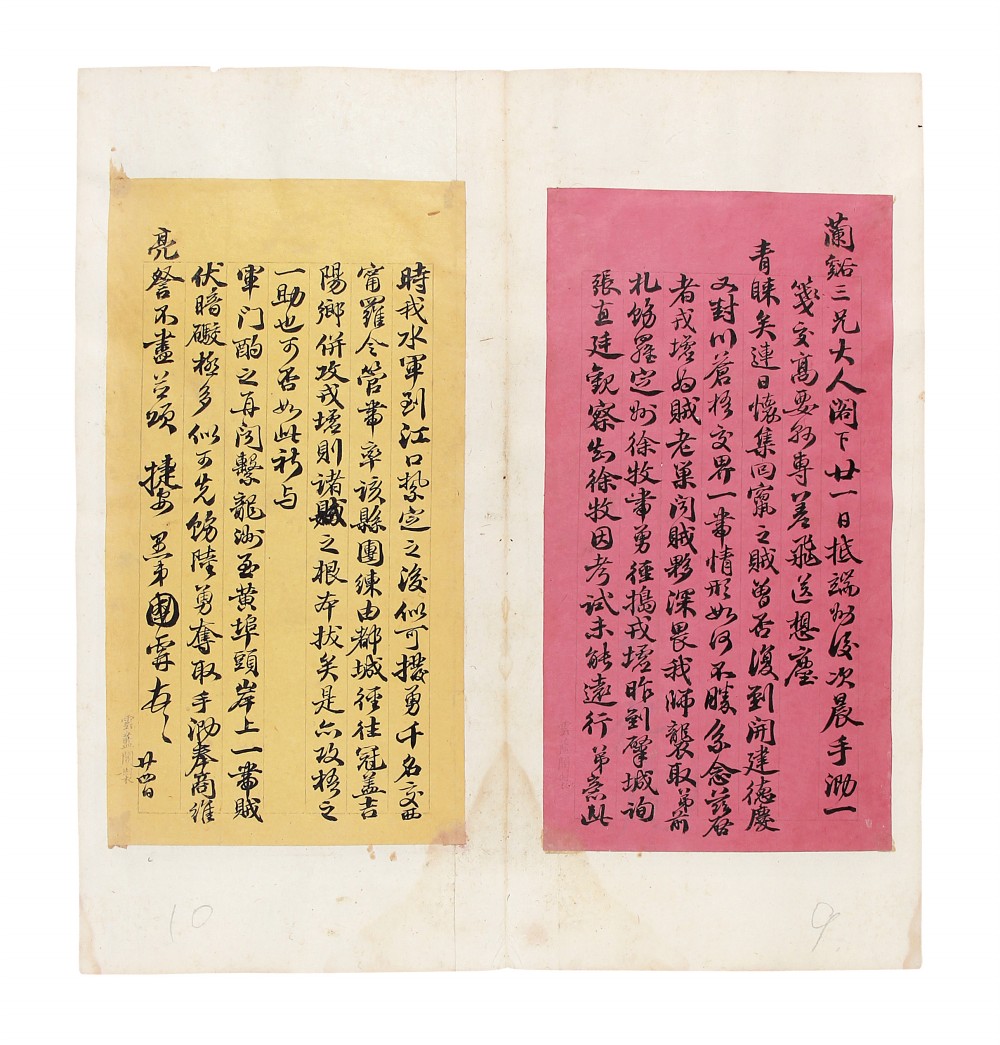 蘭谿三兄大人閣下廿一日抵端州後次晨手泐一
箋交高要縣專差飛送想塵
青睞矣連日懷集回竄之賊曾否復到開建德慶
又對川蒼梧交界一帶情形如何不勝系念茲啓
者戎墟為賊老巢聞賊夥深畏我師襲取弟前
札飭羅定州徐牧帶勇徑搗戎墟昨到肇城詢
張直廷觀察知徐牧因考試未能遠行弟意此
時我水軍到江口紮定之後似可撥勇千名交西
甯羅令管帶率該縣團練由都城徑往冠蓋吉
陽鄉併攻戎墟則諸賊之根本拔矣是亦攻梧之
一助也可否如此祈与
軍門酌之再聞繫龍洲至黃埠頭岸上一帶賊
伏暗礮極多似可先飭陸勇奪取手泐奉商維
亮詧不盡並頌 捷安 愚弟國霖 廿四日
雲藍閣製
10
9